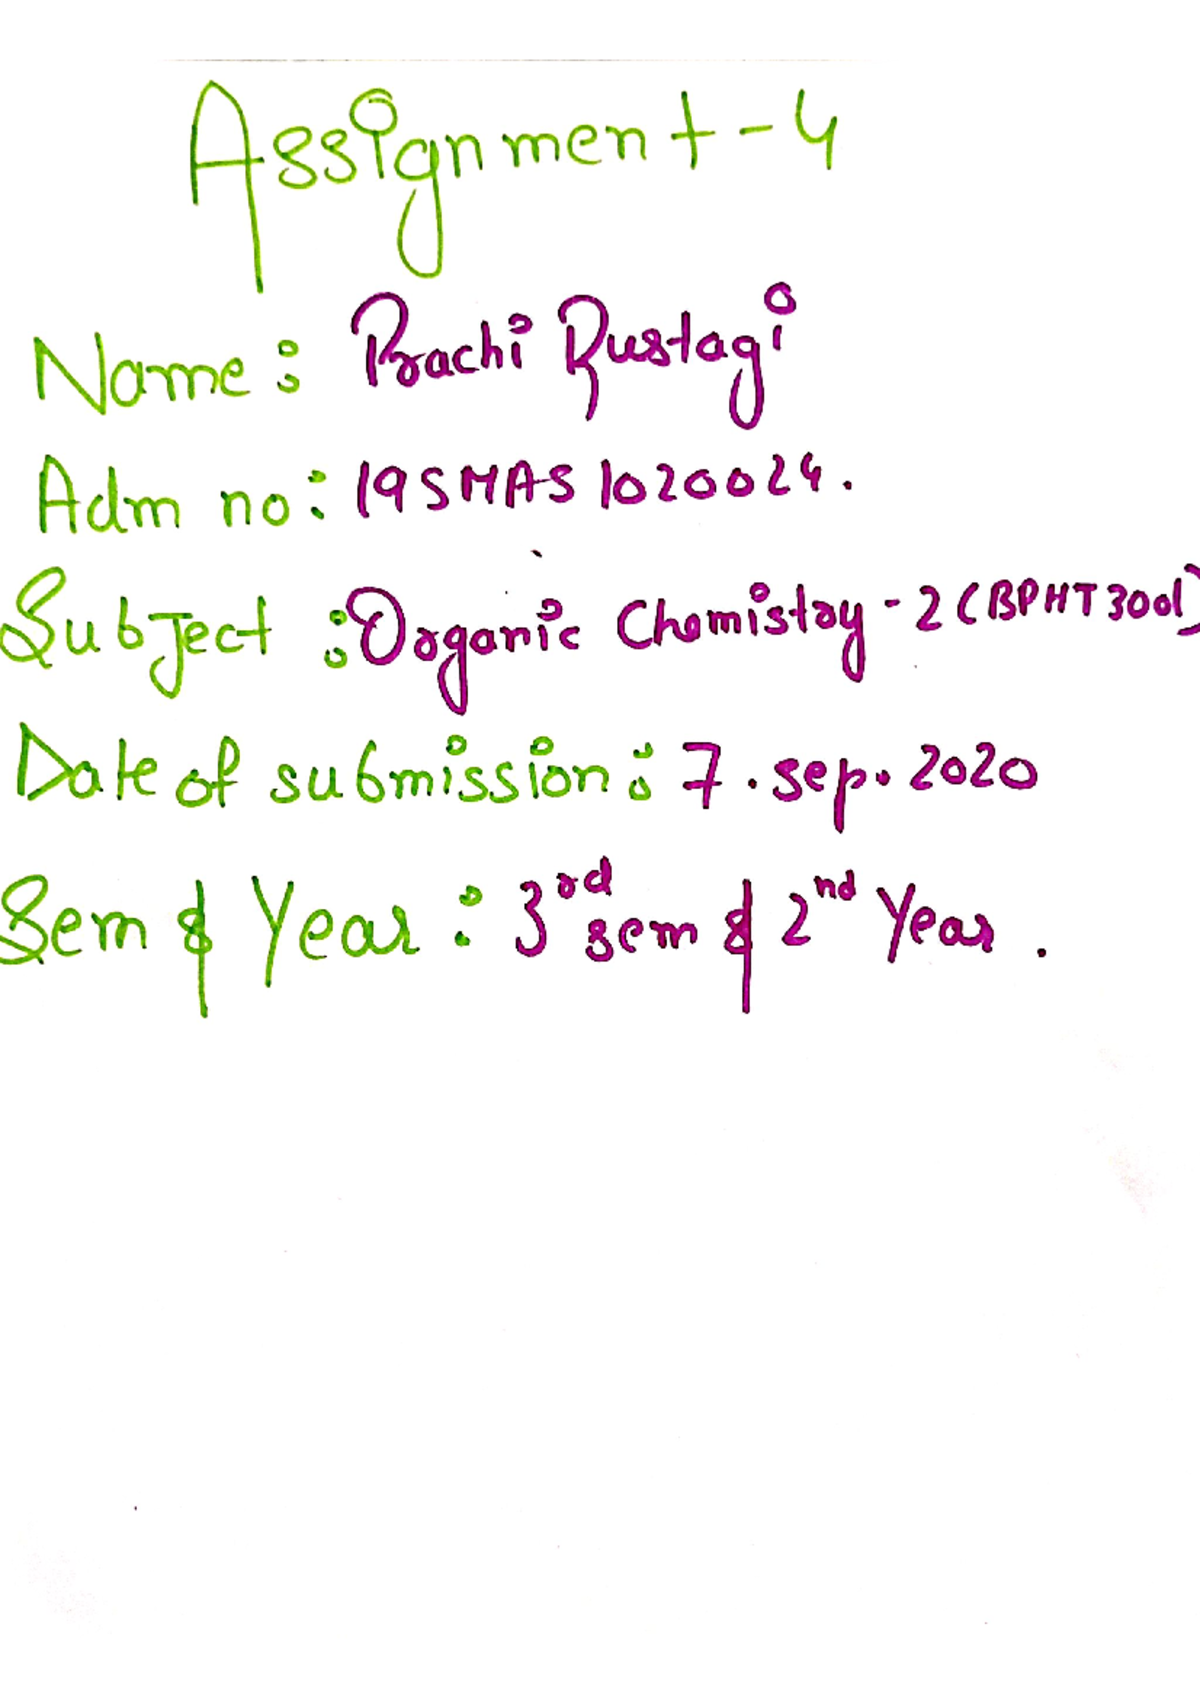 Assignment-4
Name: Prachi Rustagi
Adm no: 19SMAS1020024.
Subject: Organic Chemistry-2(BPHT3001)
Date of submission: 7.sep.2020
Sem & Year: 3rd sem & 2nd Year.